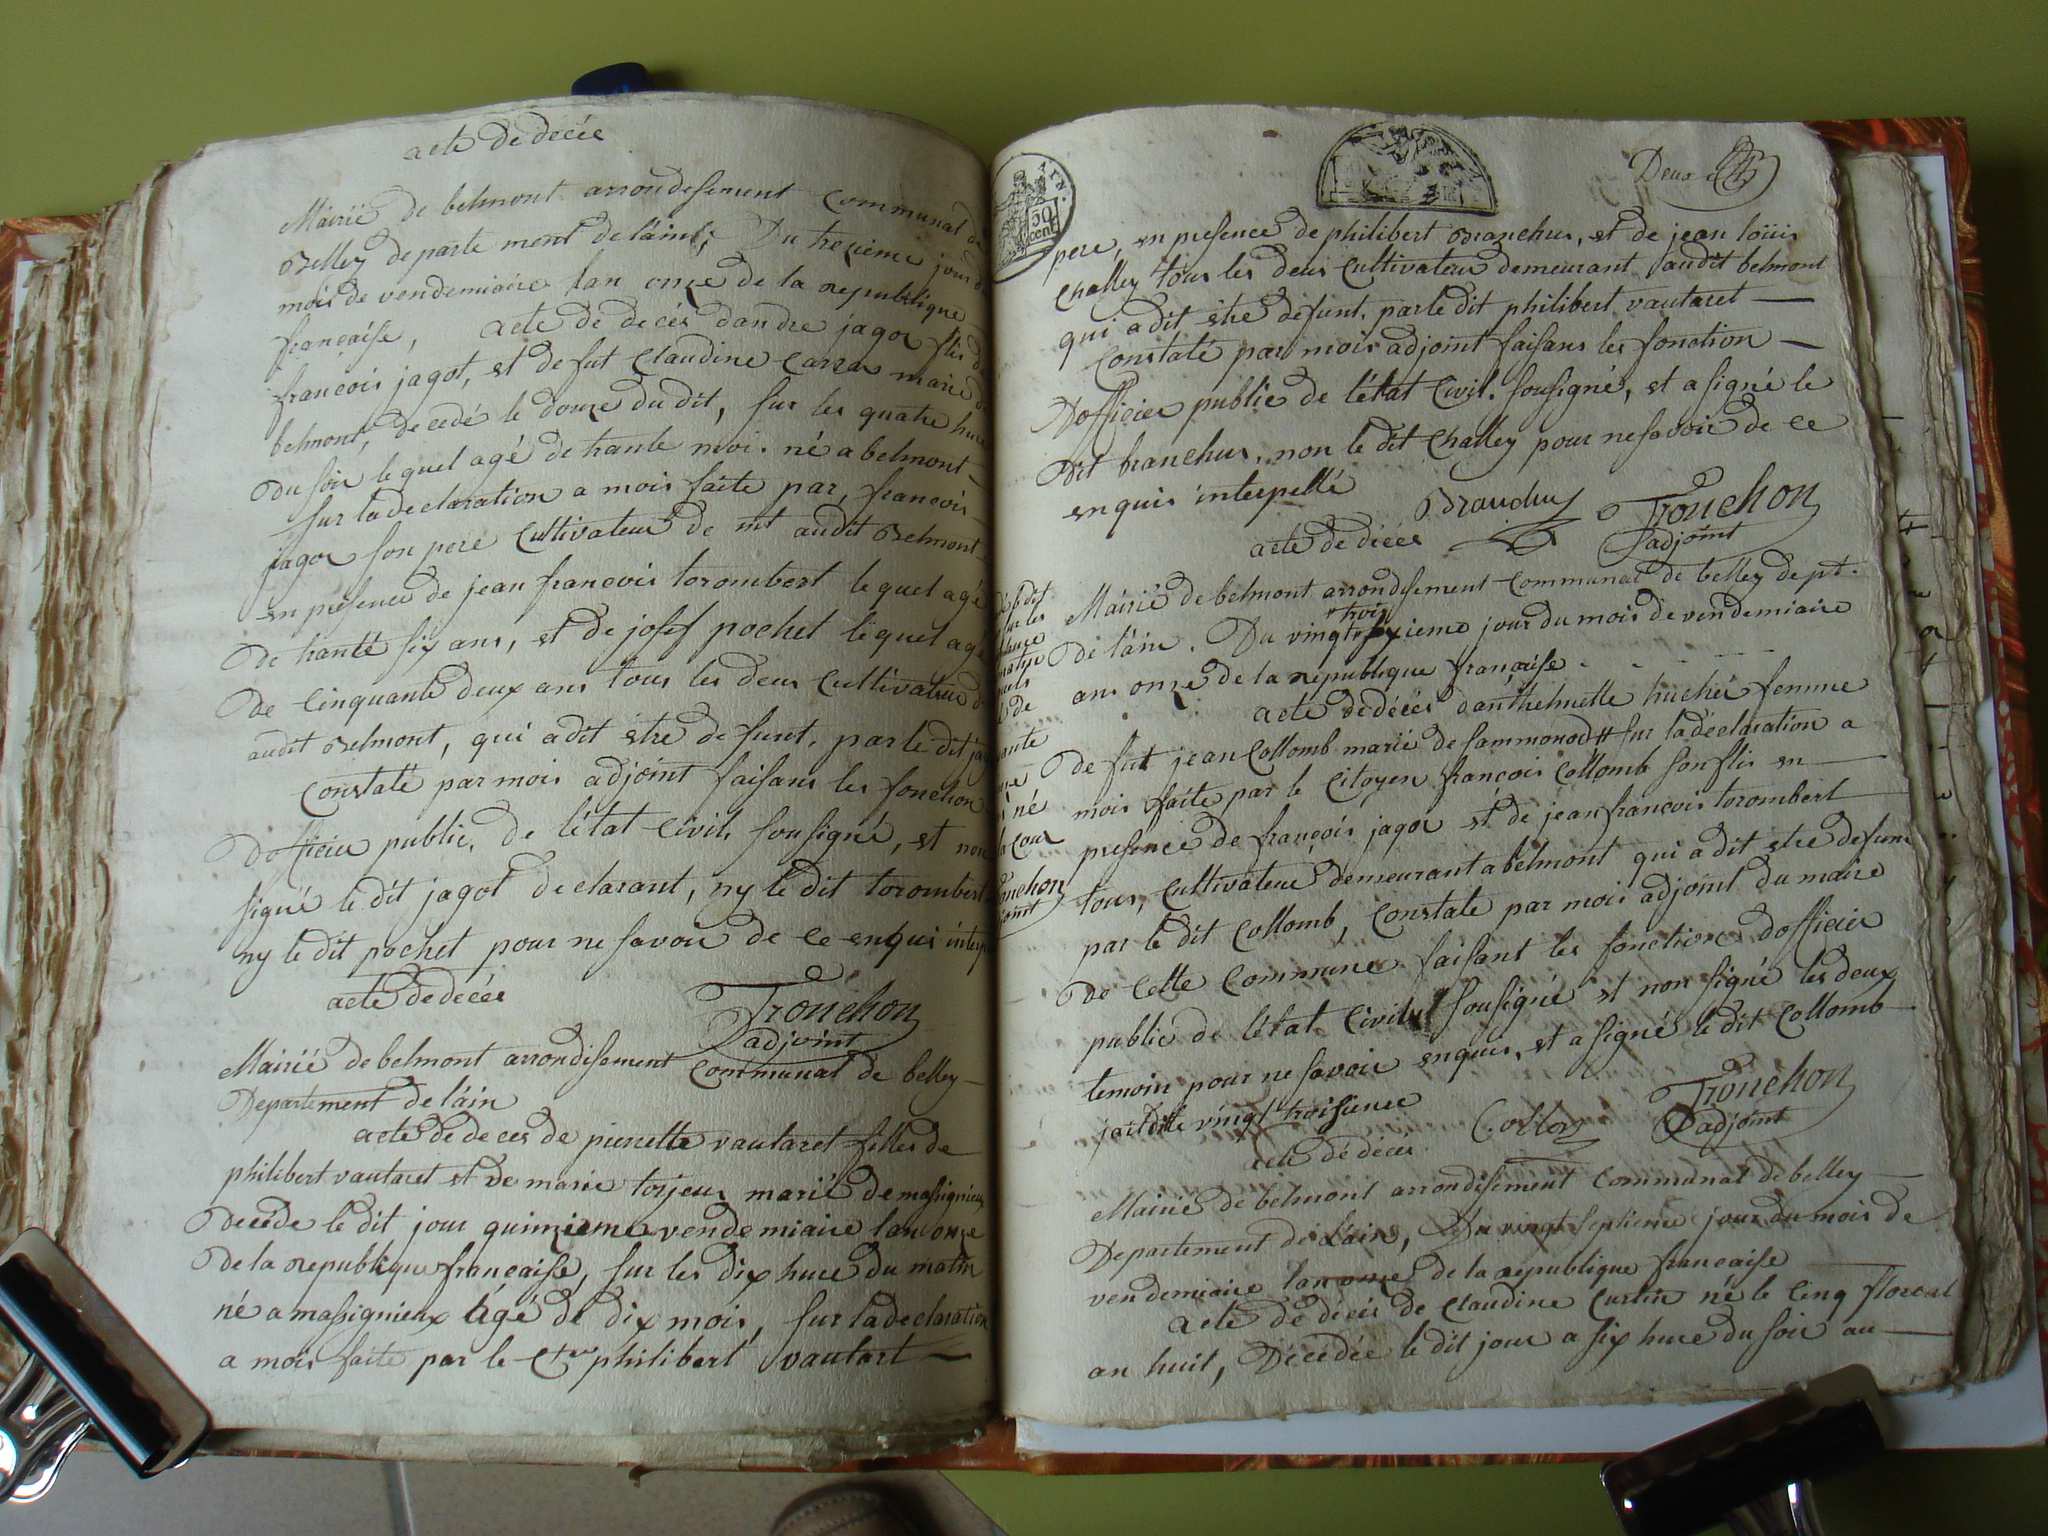 acte de décée
Mairië de belmont arrondissement communal de
Belley departement de láin, Du trezieme jour du
mois de vendemiaire lan onze de la republique
françaisse, acte de decés dandre jagot flis de
françois jagot, et de fut Claudine Carra marié de
belmont, decedé le douze du dit, sur les quatre hure
du soir lequel agé de trante moi. né a belmont
sur la declaration a mois faite par, francois
jagot son pere Cultivateur de mt audit Belmont
en presence de jean francois torombert lequel agé
de trante six ans, et de josef pochet lequel agé
de Cinquante deux ans tous les deux Cultivateur
audit Belmont, qui a dit etre defunt, par le dit
Constatë par mois adjoint faisans les fonction
Dofficier public, de létat Civil, sousigné, et non
signé le dit jagot declarant, ny le dit torombert
ny le dit pochet pour ne savoir de ce enquis
acte de decés
Trouchon
adjoint
Mairië de belmont arrondisement Communal de belley
Departement de láin
acte de deces de pierrette vautaret filles de
philibert vautaret et de marie torjeux marié de massignieux
Decéde le dit jour quinzieme vendemiaire lan onze
de la republique françaisse, sur les dix hure du matin
né a massignieux agé de dix mois, sur la declaration
a mois faite par le Cten philibert vautart
Deux
30 cent
pere, en presence de philibert Branchus, et de jean loüis
Challey tous les deux Cultivateur demeurant audit belmont
qui a dit etre defunt. par le dit philibert vautaret
Constaté par mois adjoint faisans les fonction
Dofficier public de létat Civil. sousigné, et a signé le
dit branchus, non le dit Challey pour ne savoir de ce
enquis interpellé
Trouchon
acte de décés
adjoint
Mairië de belmont arrondisement Communal de belley dept.
trois
de láin. Du vingt ieme jour du mois de vendemiaire
ans onze de la republique françaisse.
acte de décés danthelmette huchei femme
de fut jean Collomb marië de sammonod # sur la déclaration a
mois faite par le Citoyen françois Collomb son flis en
presence de françois jagot et de jean françois torombert
tous, Cultivateur demeurant a belmont qui a dit etre defunt
par le dit Collomb, Constate par mois adjoint du maire
de Cette Commune faisant les fonction dofficier
public de létat Civil sousigné et non signé les deux
temoin pour ne savoir enquis, et a signé le dit Collomb
vingt troisieme
Trouchon
acte dé décés
adjoint
Mairië de belmont arrondisement Communal de belley
Departement de láin, Du vingt septieme jour du mois de
vendemiaire lan onze de la republique francaise
acte de décés de Claudine Curtin né le Cinq floreal
an huit, Décedée le dit jour a six hure du soir au